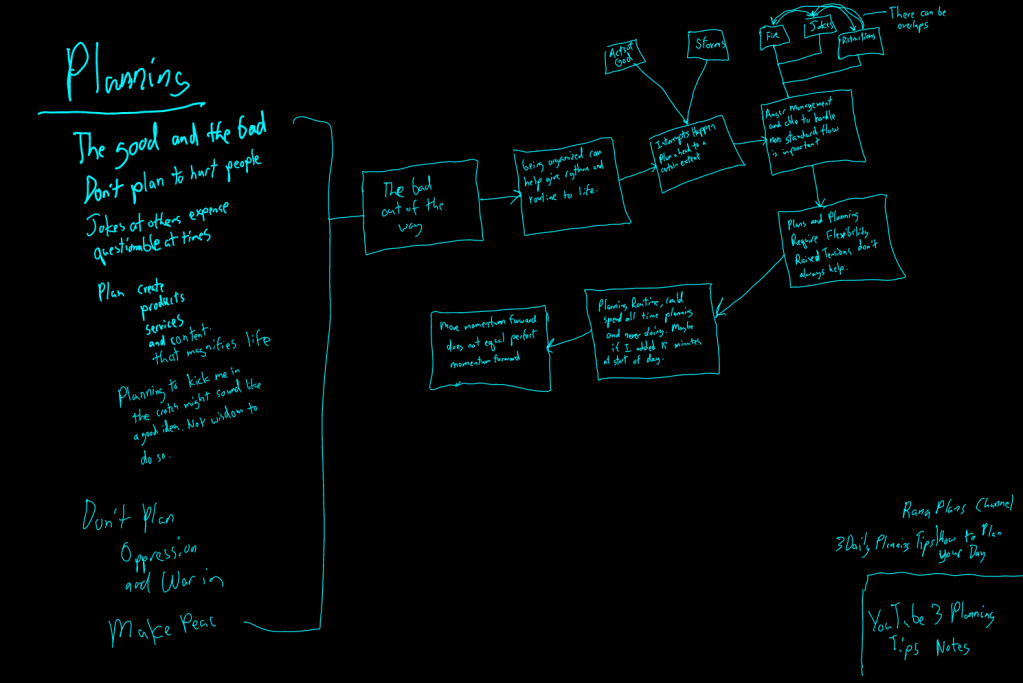 Planning
The good and the bad
Don't plan to hurt people
Jokes at others expense
questionable at times
Plan create
products
services
and content.
that magnifies life
Planning to kick me in
the crotch might sound like
a good idea. Not wisdom to
do so.
Don't Plan
Oppression
and War in
Make Peac
The bad
out of the
way
Being organized can
help give rythm and
routine to life.
Acts of
God
Storms
Interrupts Happen
Plan and to a
certain extent
Fire
Jokes
Distractions
There can be
overlaps
Anger management
and able to handle
non standard flow
is important
Plans and Planning
Require Flexibility
Raised Tensions don't
always help.
Planning Routine, could
spend all time planning
and never doing. Maybe
if I added 15 minutes
at start of day.
Move momentum forward
does not equal perfect
momentum forward
Rana Plans Channel
3 Daily Planning Tips | How to Plan
Your Day
YouTube 3 Planning
Tips Notes